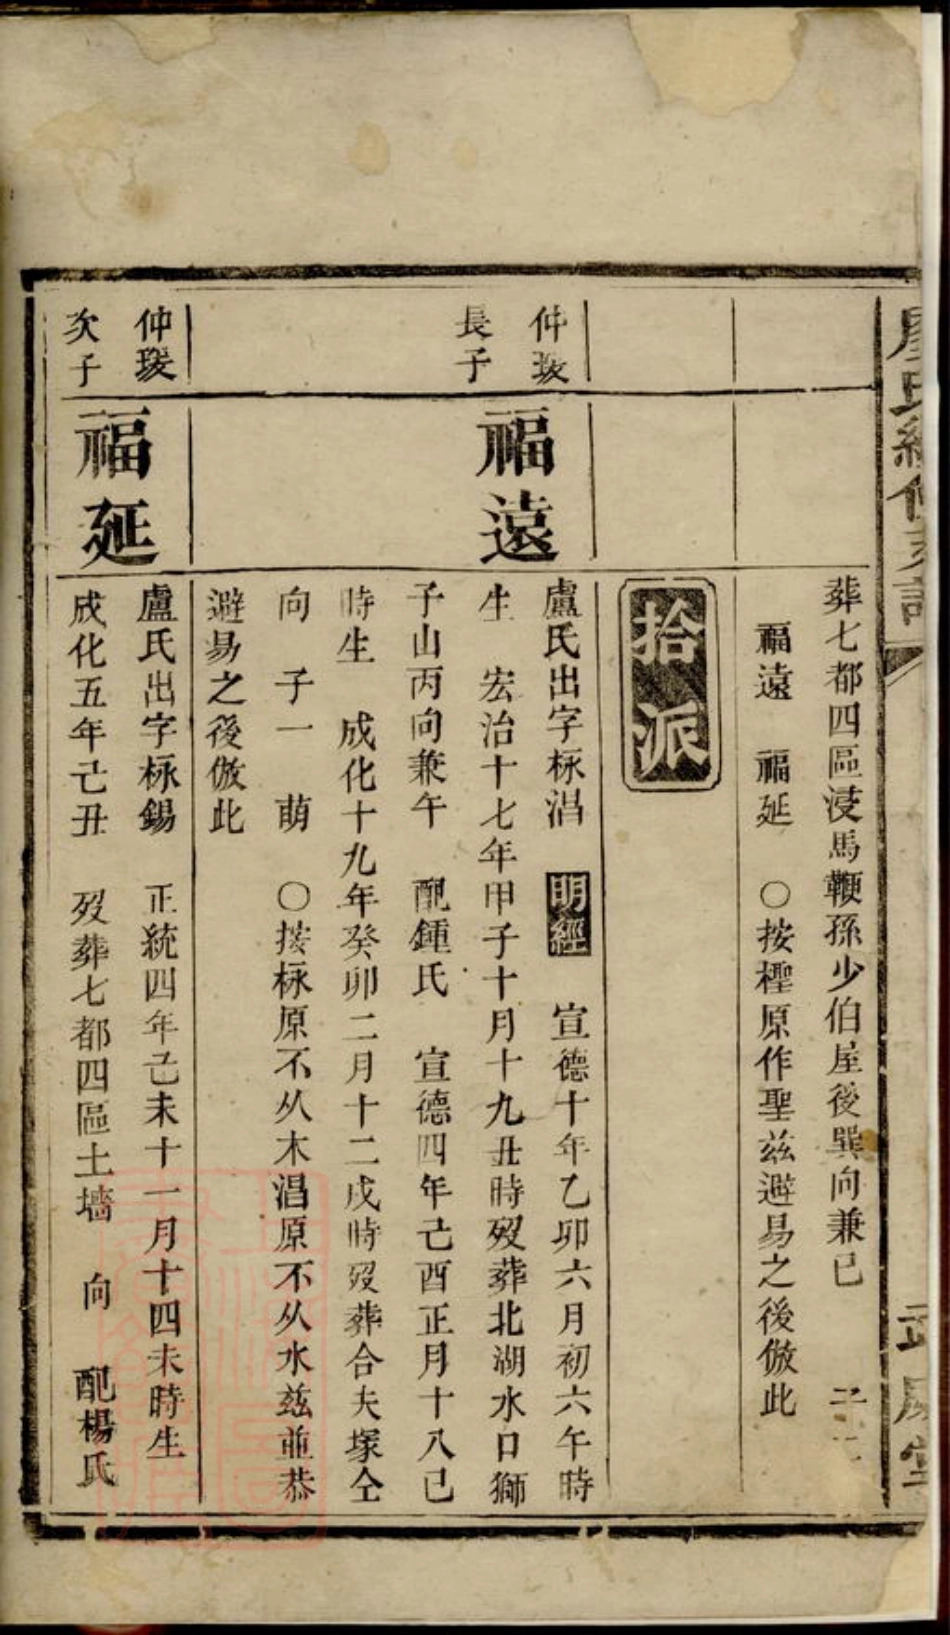 廖氏續修支譜
葬七都四區浸馬鞭孫少伯屋後巽向兼巳 子二
福遠 福延 〇按檉原作聖兹避易之後倣此
拾派
仲瑗
長子
福遠
盧氏出字栐淐 明經 宣德十年乙卯六月初六午時
生 宏治十七年甲子十月十九丑時歿葬北湖水口獅
子山丙向兼午 配鍾氏 宣德四年己酉正月十八巳
時生 成化十九年癸卯二月十二戌時歿葬合夫塚仝
向 子一 萌 〇按栐原不从木淐原不从水兹並恭
避易之後倣此
仲瑗
次子
福延
盧氏出字栐錫 正統四年己未十一月十四未時生
成化五年己丑 歿葬七都四區土墻 向 配楊氏